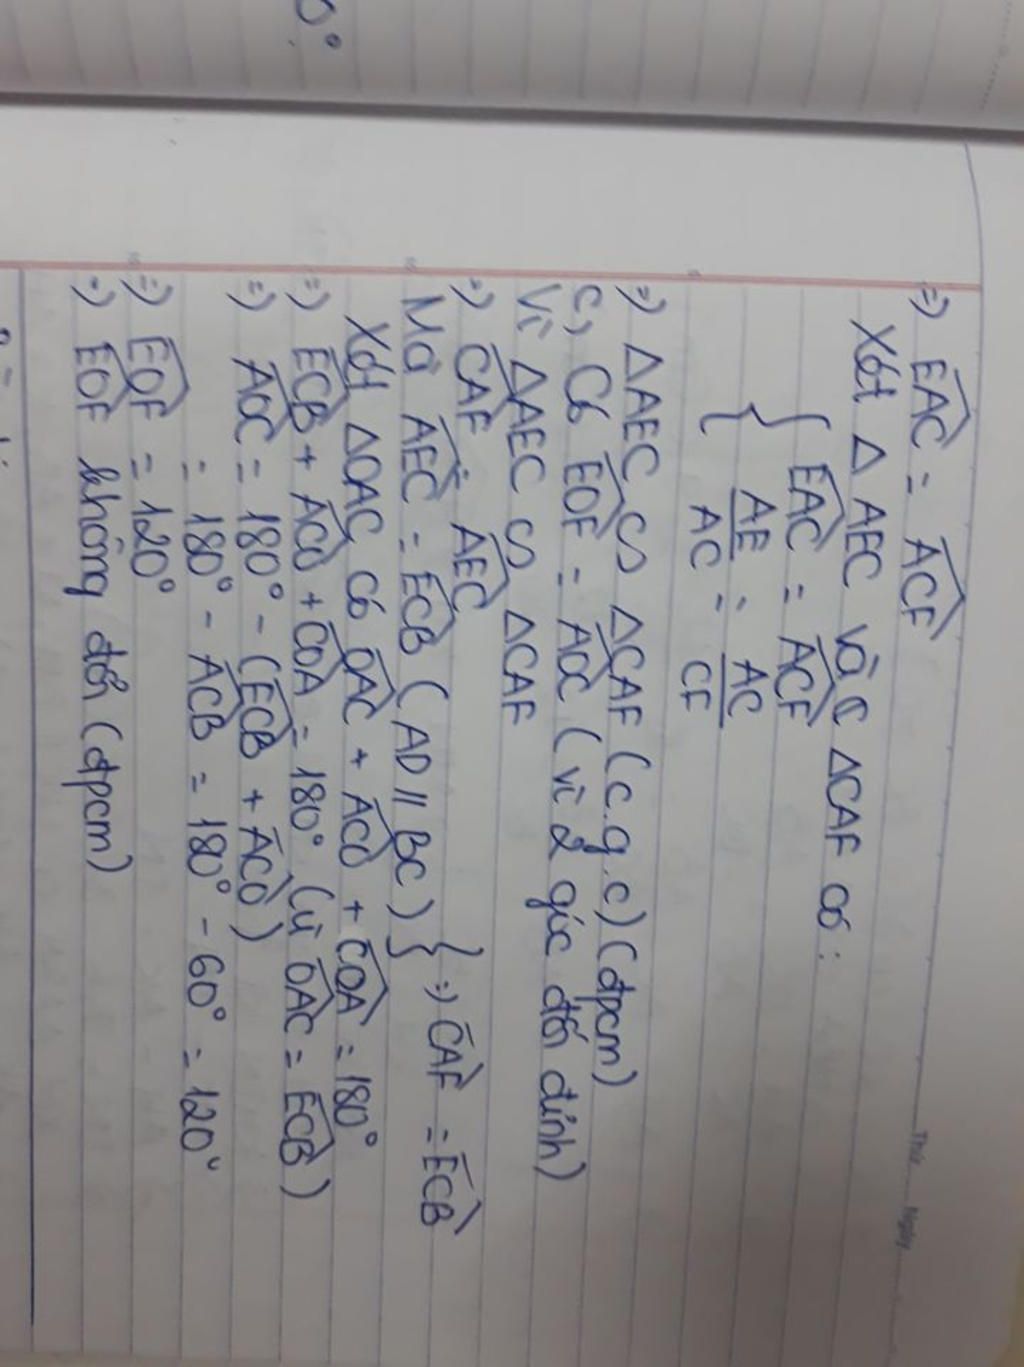 0°
Thứ Ngày
=) EAC = ACF
Xét Δ AEC và ΔCAF có:
{ EAC = ACF
AE/AC = AC/CF
=) ΔAEC ∽ ΔCAF (c.g.c) (đpcm)
c, Có EOF = AOC (vì 2 góc đối đỉnh)
Vì ΔAEC ∽ ΔCAF
=) CAF = AEC
Mà AEC = ECB (AD // BC) } =) CAF = ECB
Xét ΔOAC có OAC + ACO + COA = 180°
=) ECB + ACO + COA = 180° (vì OAC = ECB)
=) AOC = 180° - (ECB + ACO)
= 180° - ACB = 180° - 60° = 120°
=) EOF = 120°
=) EOF không đổi (đpcm)